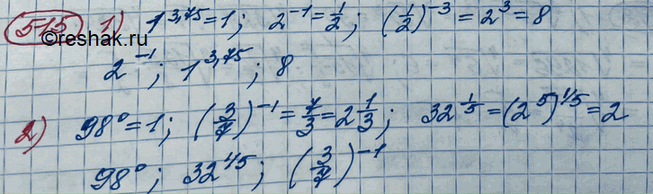 515 1) 1^3,75 = 1; 2^-1 = 1/2; (1/2)^-3 = 2^3 = 8
©reshak.ru
2^-1; 1^3,75; 8
2) 98^0 = 1; (3/7)^-1 = 7/3 = 2 1/3; 32^1/5 = (2^5)^1/5 = 2
98^0; 32^1/5; (3/7)^-1